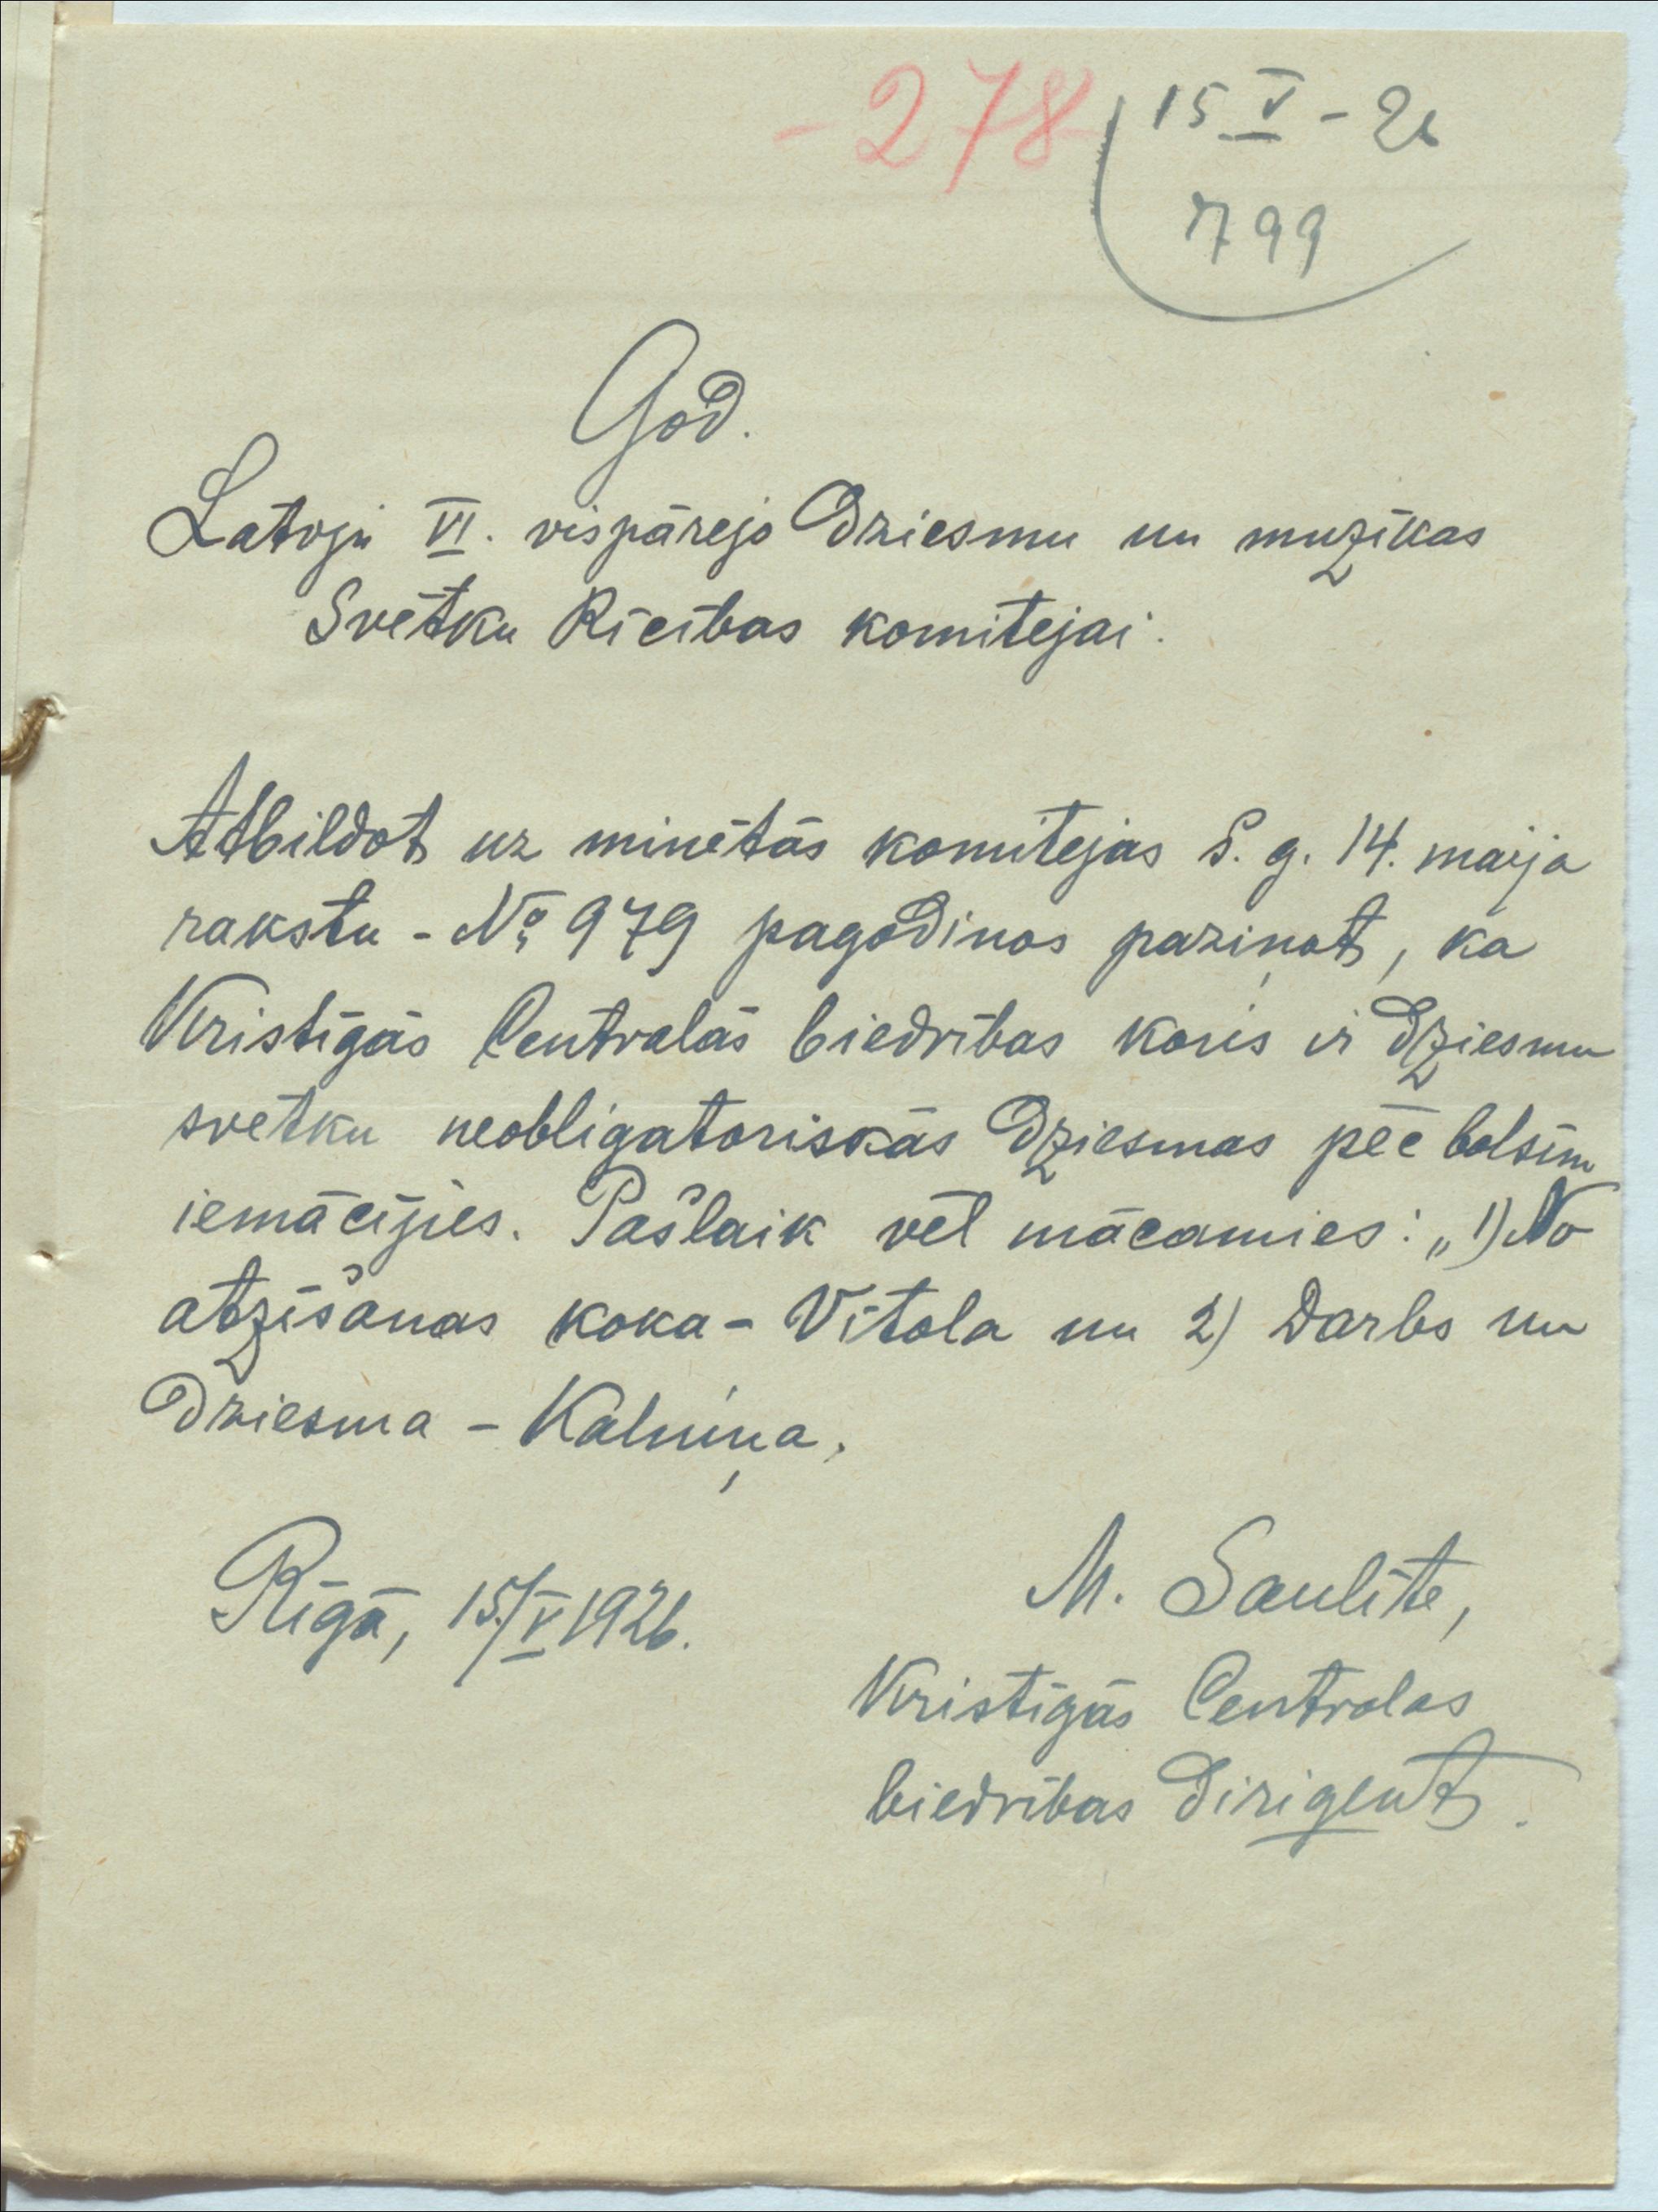 - 278
15 V - 26
799
God.
Latvju VI. vispārejo Dziesmu un muzikas
Svētku Rīcības komitejai.
Atbildot uz minētās komitejas š. g. 14. maija
rakstu - № 979 pagodinos paziņot, ka
Kristīgās Centralās biedrības koris ir dziesmu
svētku neobligatoriskās dziesmas pēc balsīm
iemācijies. Pašlaik vēl mācamies: „1) No
atzīšanas koka - Vītola un 2) Darbs un
Dziesma - Kalniņa.
Rīgā, 15./V 1926.
M. Saulīte,
Kristīgās Centralas
biedrības Dirigents.